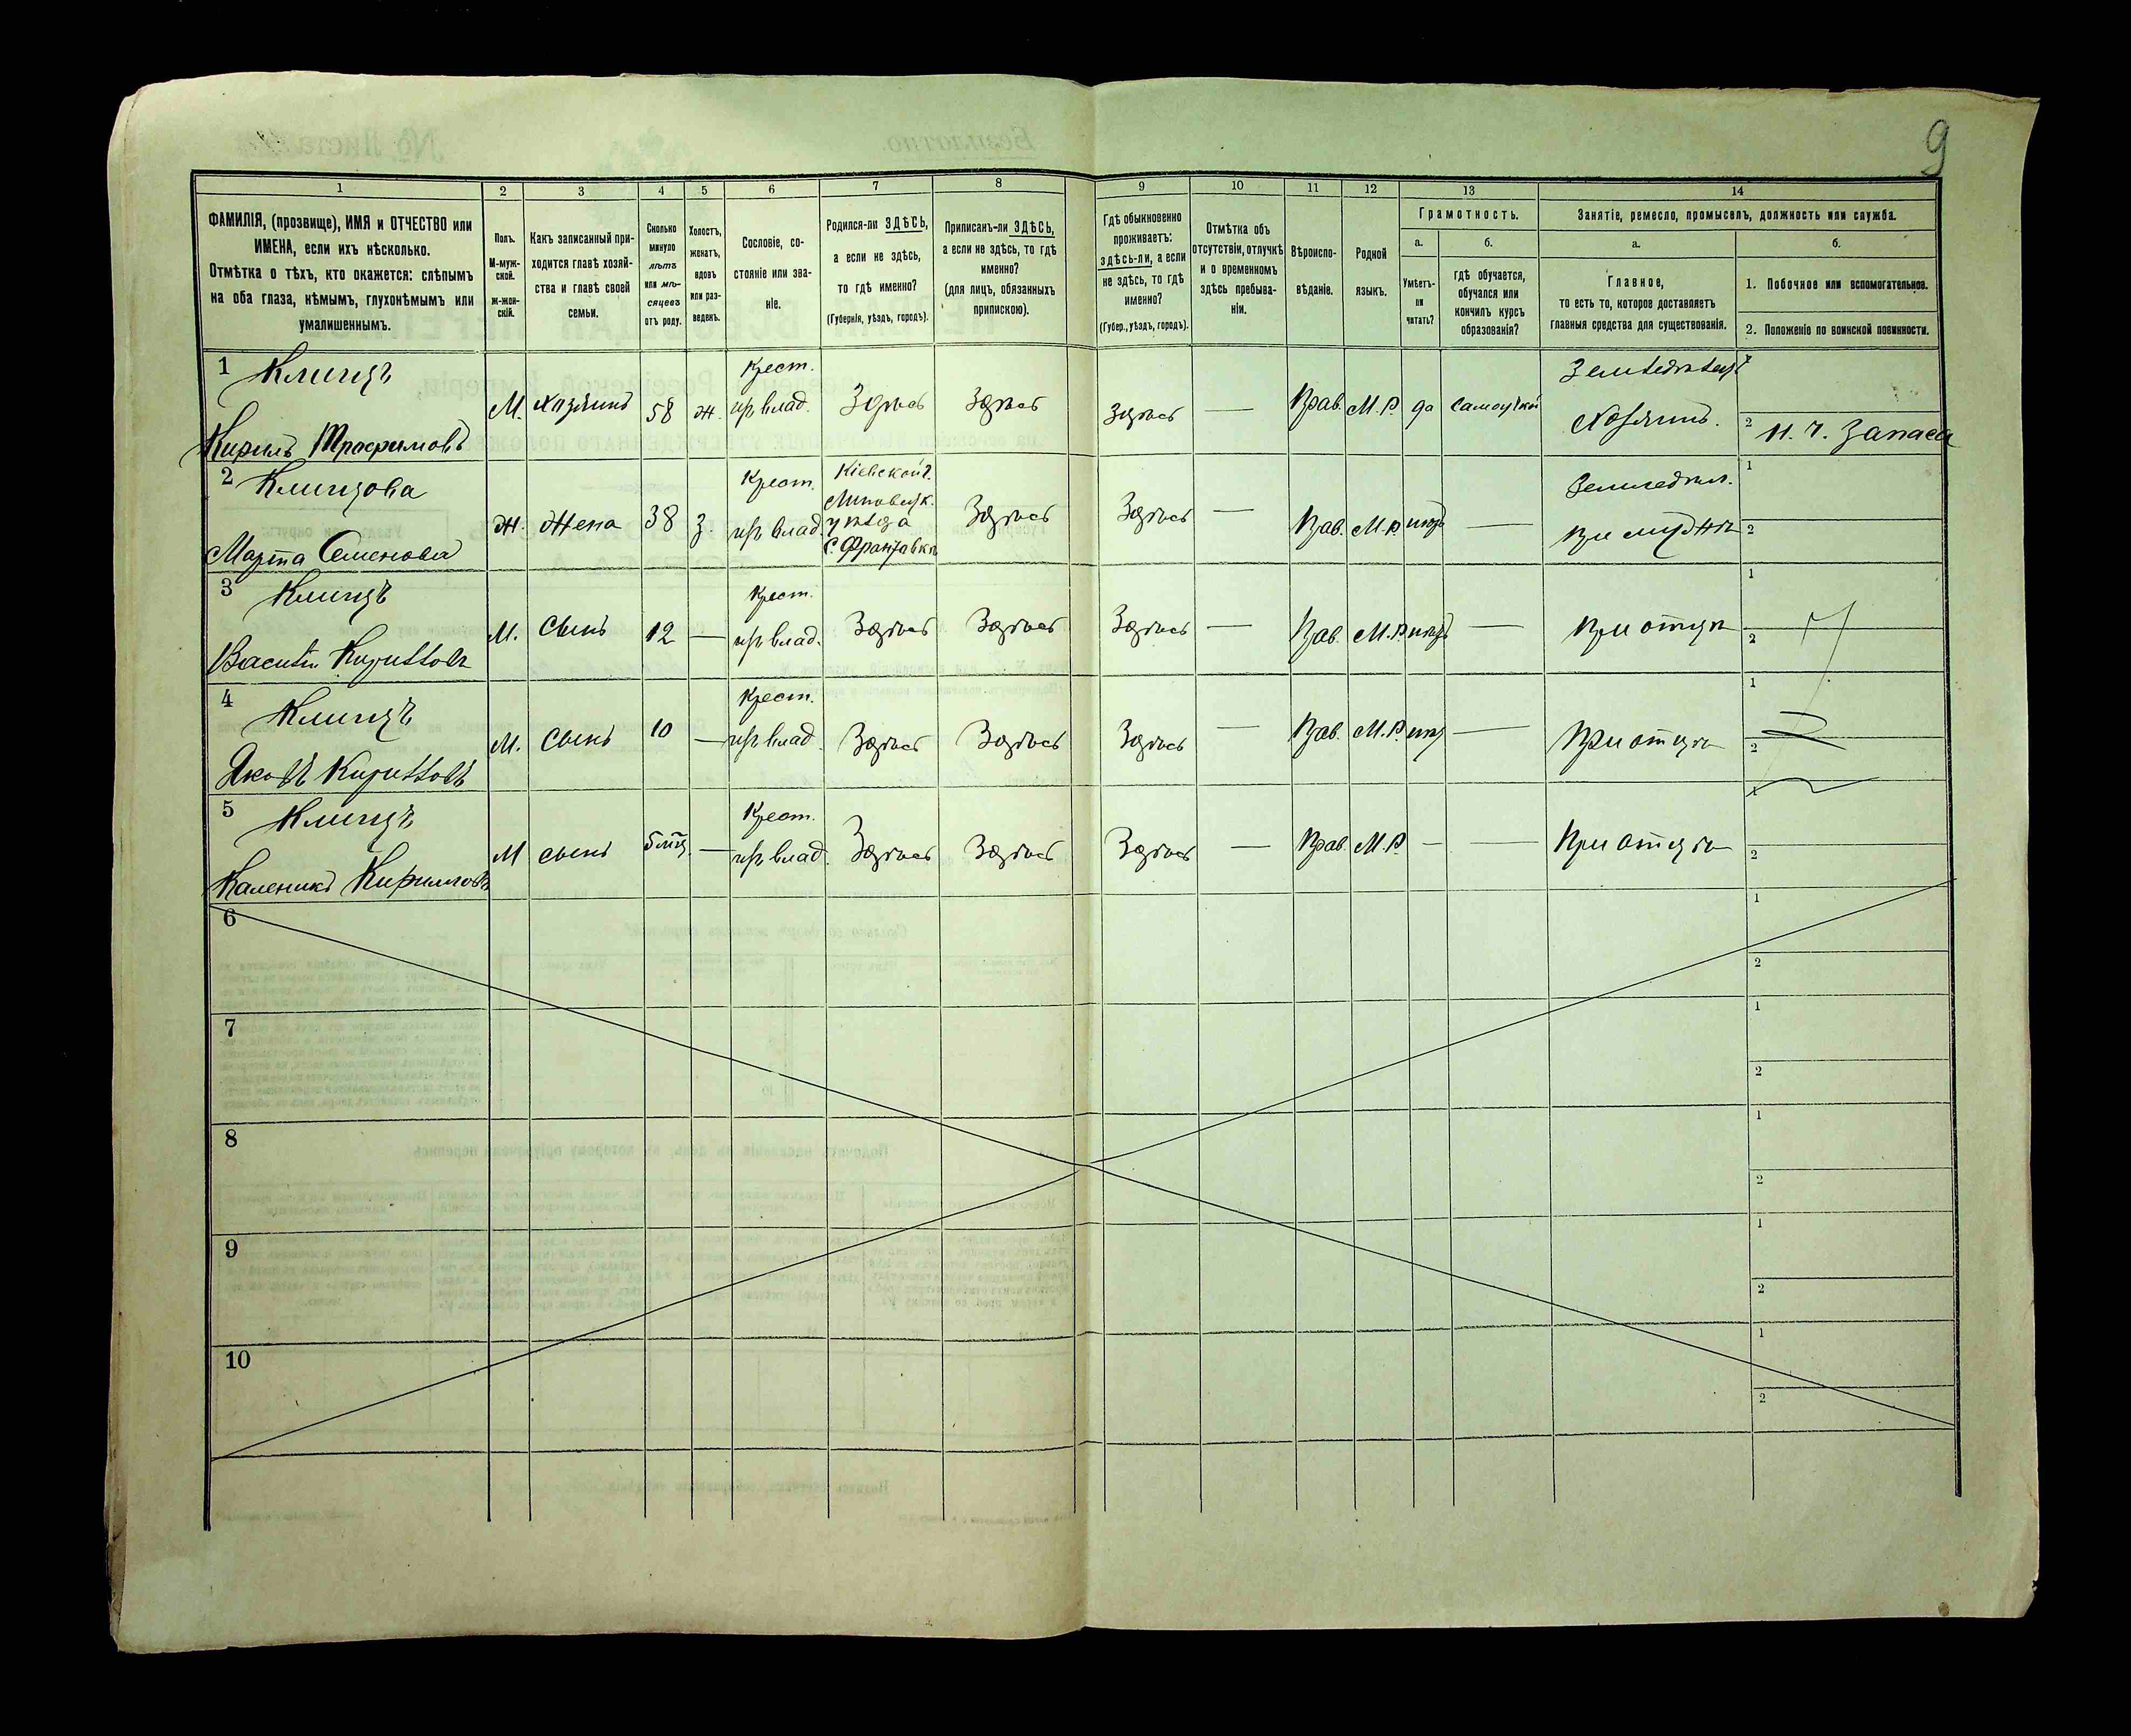 9
1
2
3
4
5
6
7
8
9
10
11
12
13
14
ФАМИЛІЯ, (прозвище), ИМЯ и ОТЧЕСТВО или
ИМЕНА, если ихъ нѣсколько.
Отмѣтка о тѣхъ, кто окажется: слѣпымъ
на оба глаза, нѣмымъ, глухонѣмымъ или
умалишеннымъ.
Полъ.
М-муж-
ской.
ж-жен-
скій.
Какъ записанный при-
ходится главѣ хозяй-
ства и главѣ своей
семьи.
Сколько
минуло
лѣтъ
или мѣ-
сяцевъ
отъ роду.
Холостъ,
женатъ,
вдовъ
или раз-
веденъ.
Сословіе, со-
стояніе или зва-
ніе.
Родился-ли ЗДѢСЬ,
а если не здѣсь,
то гдѣ именно?
(Губернія, уѣздъ, городъ).
Приписанъ-ли ЗДѢСЬ,
а если не здѣсь, то гдѣ
именно?
(для лицъ, обязанныхъ
припискою).
Гдѣ обыкновенно
проживаетъ:
здѣсь-ли, а если
не здѣсь, то гдѣ
именно?
(Губер., уѣздъ, городъ).
Отмѣтка объ
отсутствіи, отлучкѣ
и о временномъ
здѣсь пребыва-
ніи.
Вѣроиспо-
вѣданіе.
Родной
языкъ.
Грамотность.
а.
б.
Умѣетъ-
ли
читать?
гдѣ обучается,
обучался или
кончилъ курсъ
образованія?
Занятіе, ремесло, промыселъ, должность или служба.
а.
б.
Главное,
то есть то, которое доставляетъ
главныя средства для существованія.
1. Побочное или вспомогательное.
2. Положеніе по воинской повинности.
1 Клинцъ
Кирилъ Трофимовъ
М.
хозяинъ
58
ж.
Крест.
из влад.
Здѣсь
Здѣсь
Здѣсь
—
Прав.
М.Р.
да
Земледѣлецъ
Хозяинъ.
2 Н. ч. Запаса
2 Клинцова
Марта Семенова
Ж.
Жена
38
З.
Крест.
из влад.
Кіевской г.
Липовецк.
уѣзда
Здѣсь
Здѣсь
—
Прав.
М.Р.
нѣтъ
—
Земледѣл.
при мужѣ
1
2
3 Клинцъ
Василій Кирилловъ
М.
Сынъ
12
—
Крест.
из влад.
Здѣсь
Здѣсь
Здѣсь
—
Прав.
М.Р.
нѣтъ
—
При отцѣ
1
2
4 Клинцъ
Яковъ Кирилловъ
М.
Сынъ
10
—
Крест.
из влад.
Здѣсь
Здѣсь
Здѣсь
—
Прав.
М.Р.
нѣтъ
—
При отцѣ
1
2
5 Клинцъ
Каленикъ Кирилловъ
М
сынъ
—
Крест.
из влад.
Здѣсь
Здѣсь
Здѣсь
—
Прав.
М.Р.
—
—
При отцѣ
1
2
6
1
2
7
1
2
8
1
2
9
1
2
10
1
2